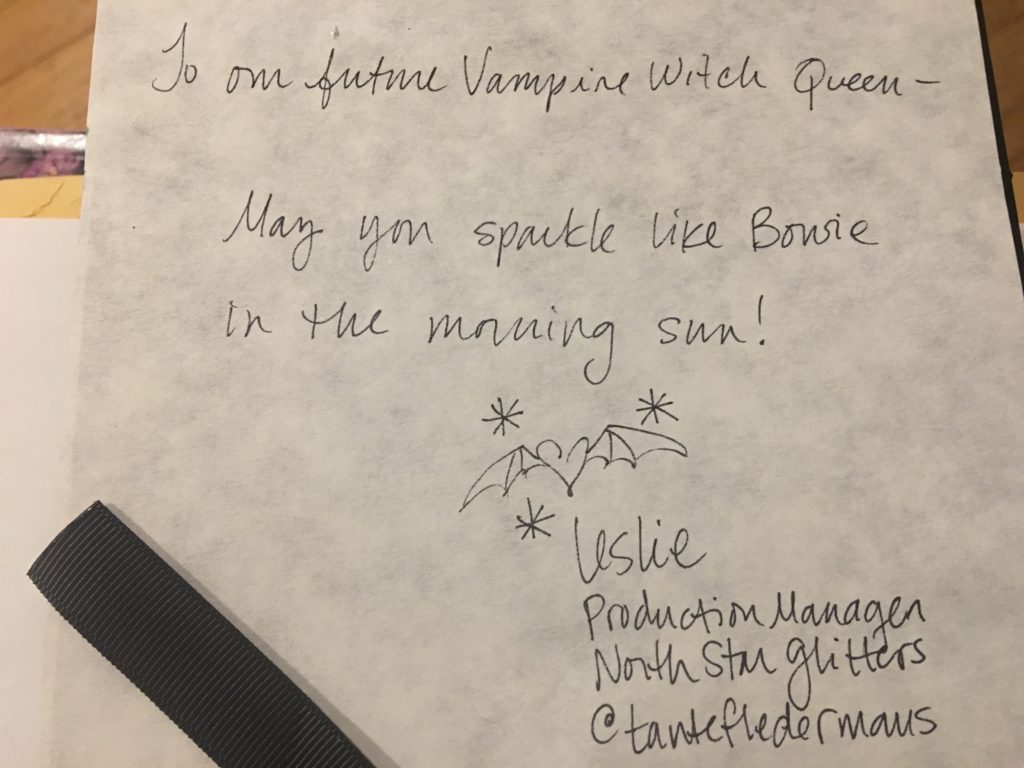 To our future Vampire Witch Queen -
May you sparkle like Bowie
in the morning sun!
Leslie
Production Manager
North Star Glitters
@tantefledermaus